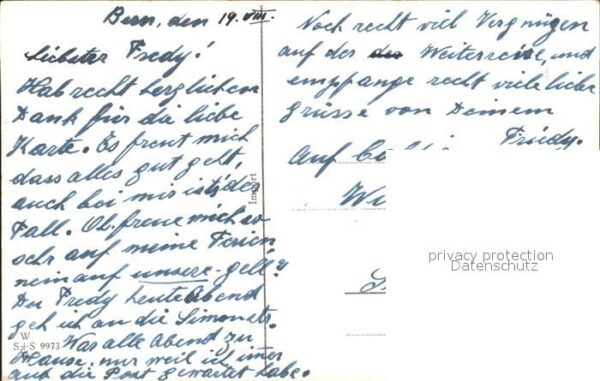 Bern, den 19. VIII.
Liebster Fredy!
Hab recht herzlichen
Dank für die liebe
Karte. Es freut mich
dass alles gut geht,
auch bei mir ist's der
Fall. Oh, freue mich so
sehr auf meine Ferien
nein auf unsere - gell?
Du Fredy heute Abend
geh ich an die
Was alle Abend zu
Hause, nur weil ich imer
auf die Post gewartet habe.
W
S+S 9973
Import
Noch recht viel Vergnügen
auf der Weiterreise, und
empfange recht viele liebe
grüsse von Deinem
Friedy.
Auf
privacy protection
Datenschutz